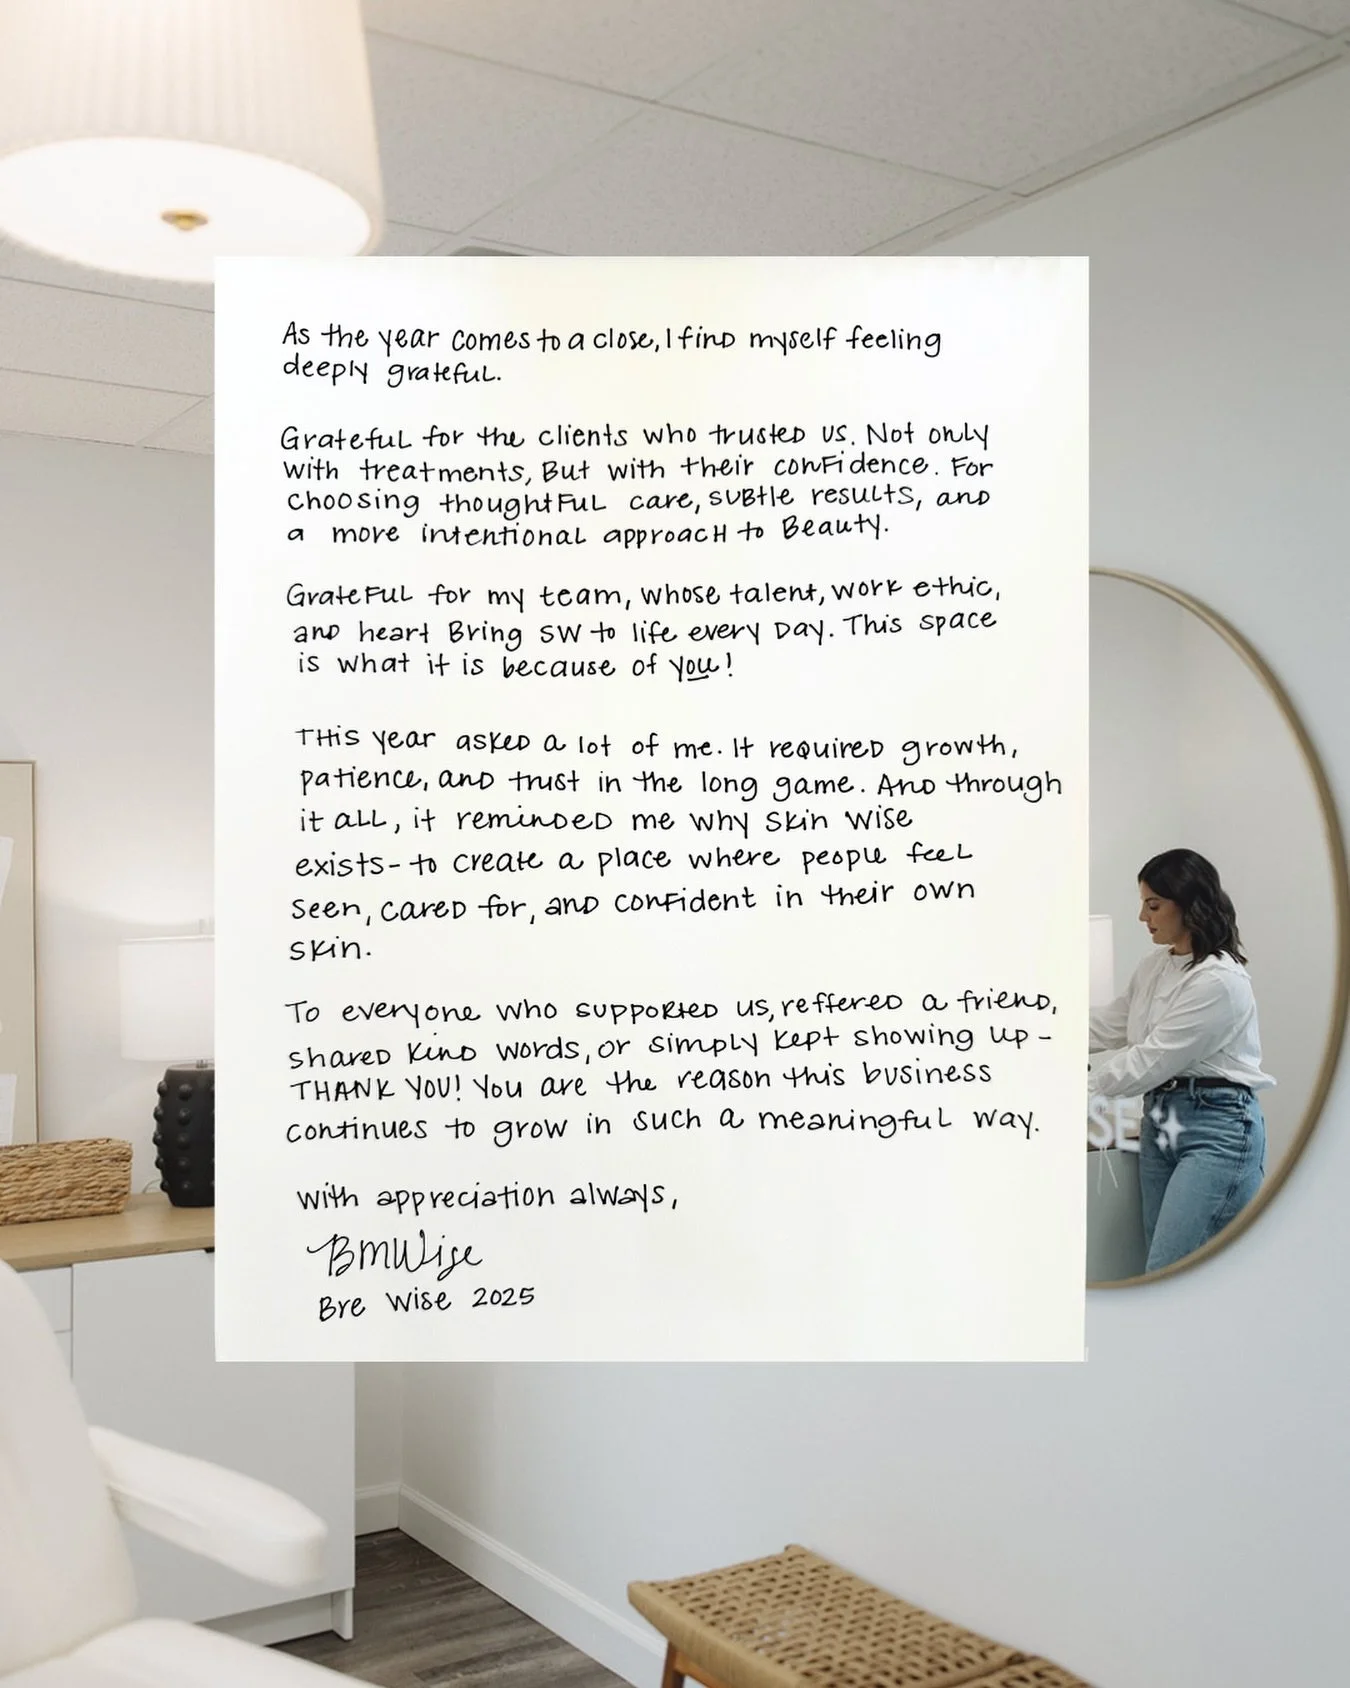 As the year comes to a close, I find myself feeling
deeply grateful.
Grateful for the clients who trusted us. Not only
with treatments, But with their confidence. For
choosing thoughtful care, subtle results, and
a more intentional approach to Beauty.
Grateful for my team, whose talent, work ethic,
and heart Bring SW to life every Day. This space
is what it is because of you!
This year asked a lot of me. It required growth,
patience, and trust in the long game. And through
it all, it reminded me why Skin Wise
exists- to create a place where people feel
seen, cared for, and confident in their own
skin.
To everyone who supported us, reffered a friend,
shared kind words, or simply kept showing up -
THANK YOU! You are the reason this business
continues to grow in such a meaningful way.
with appreciation always,
BMWise
Bre Wise 2025
SE